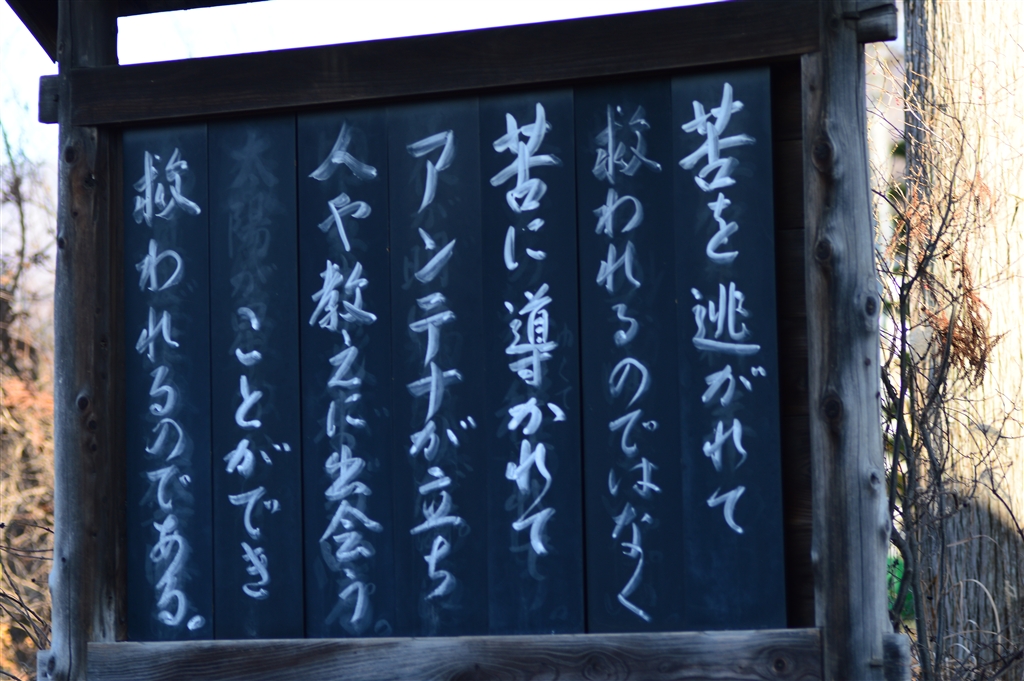 苦を逃がれて
救われるのではなく
苦に導かれて
アンテナが立ち
人や教えに出会う
ことができ
救われるのである。